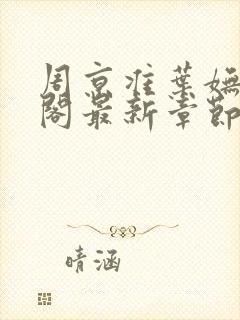 周京淮葉嫵
閣最新章節
晴涵